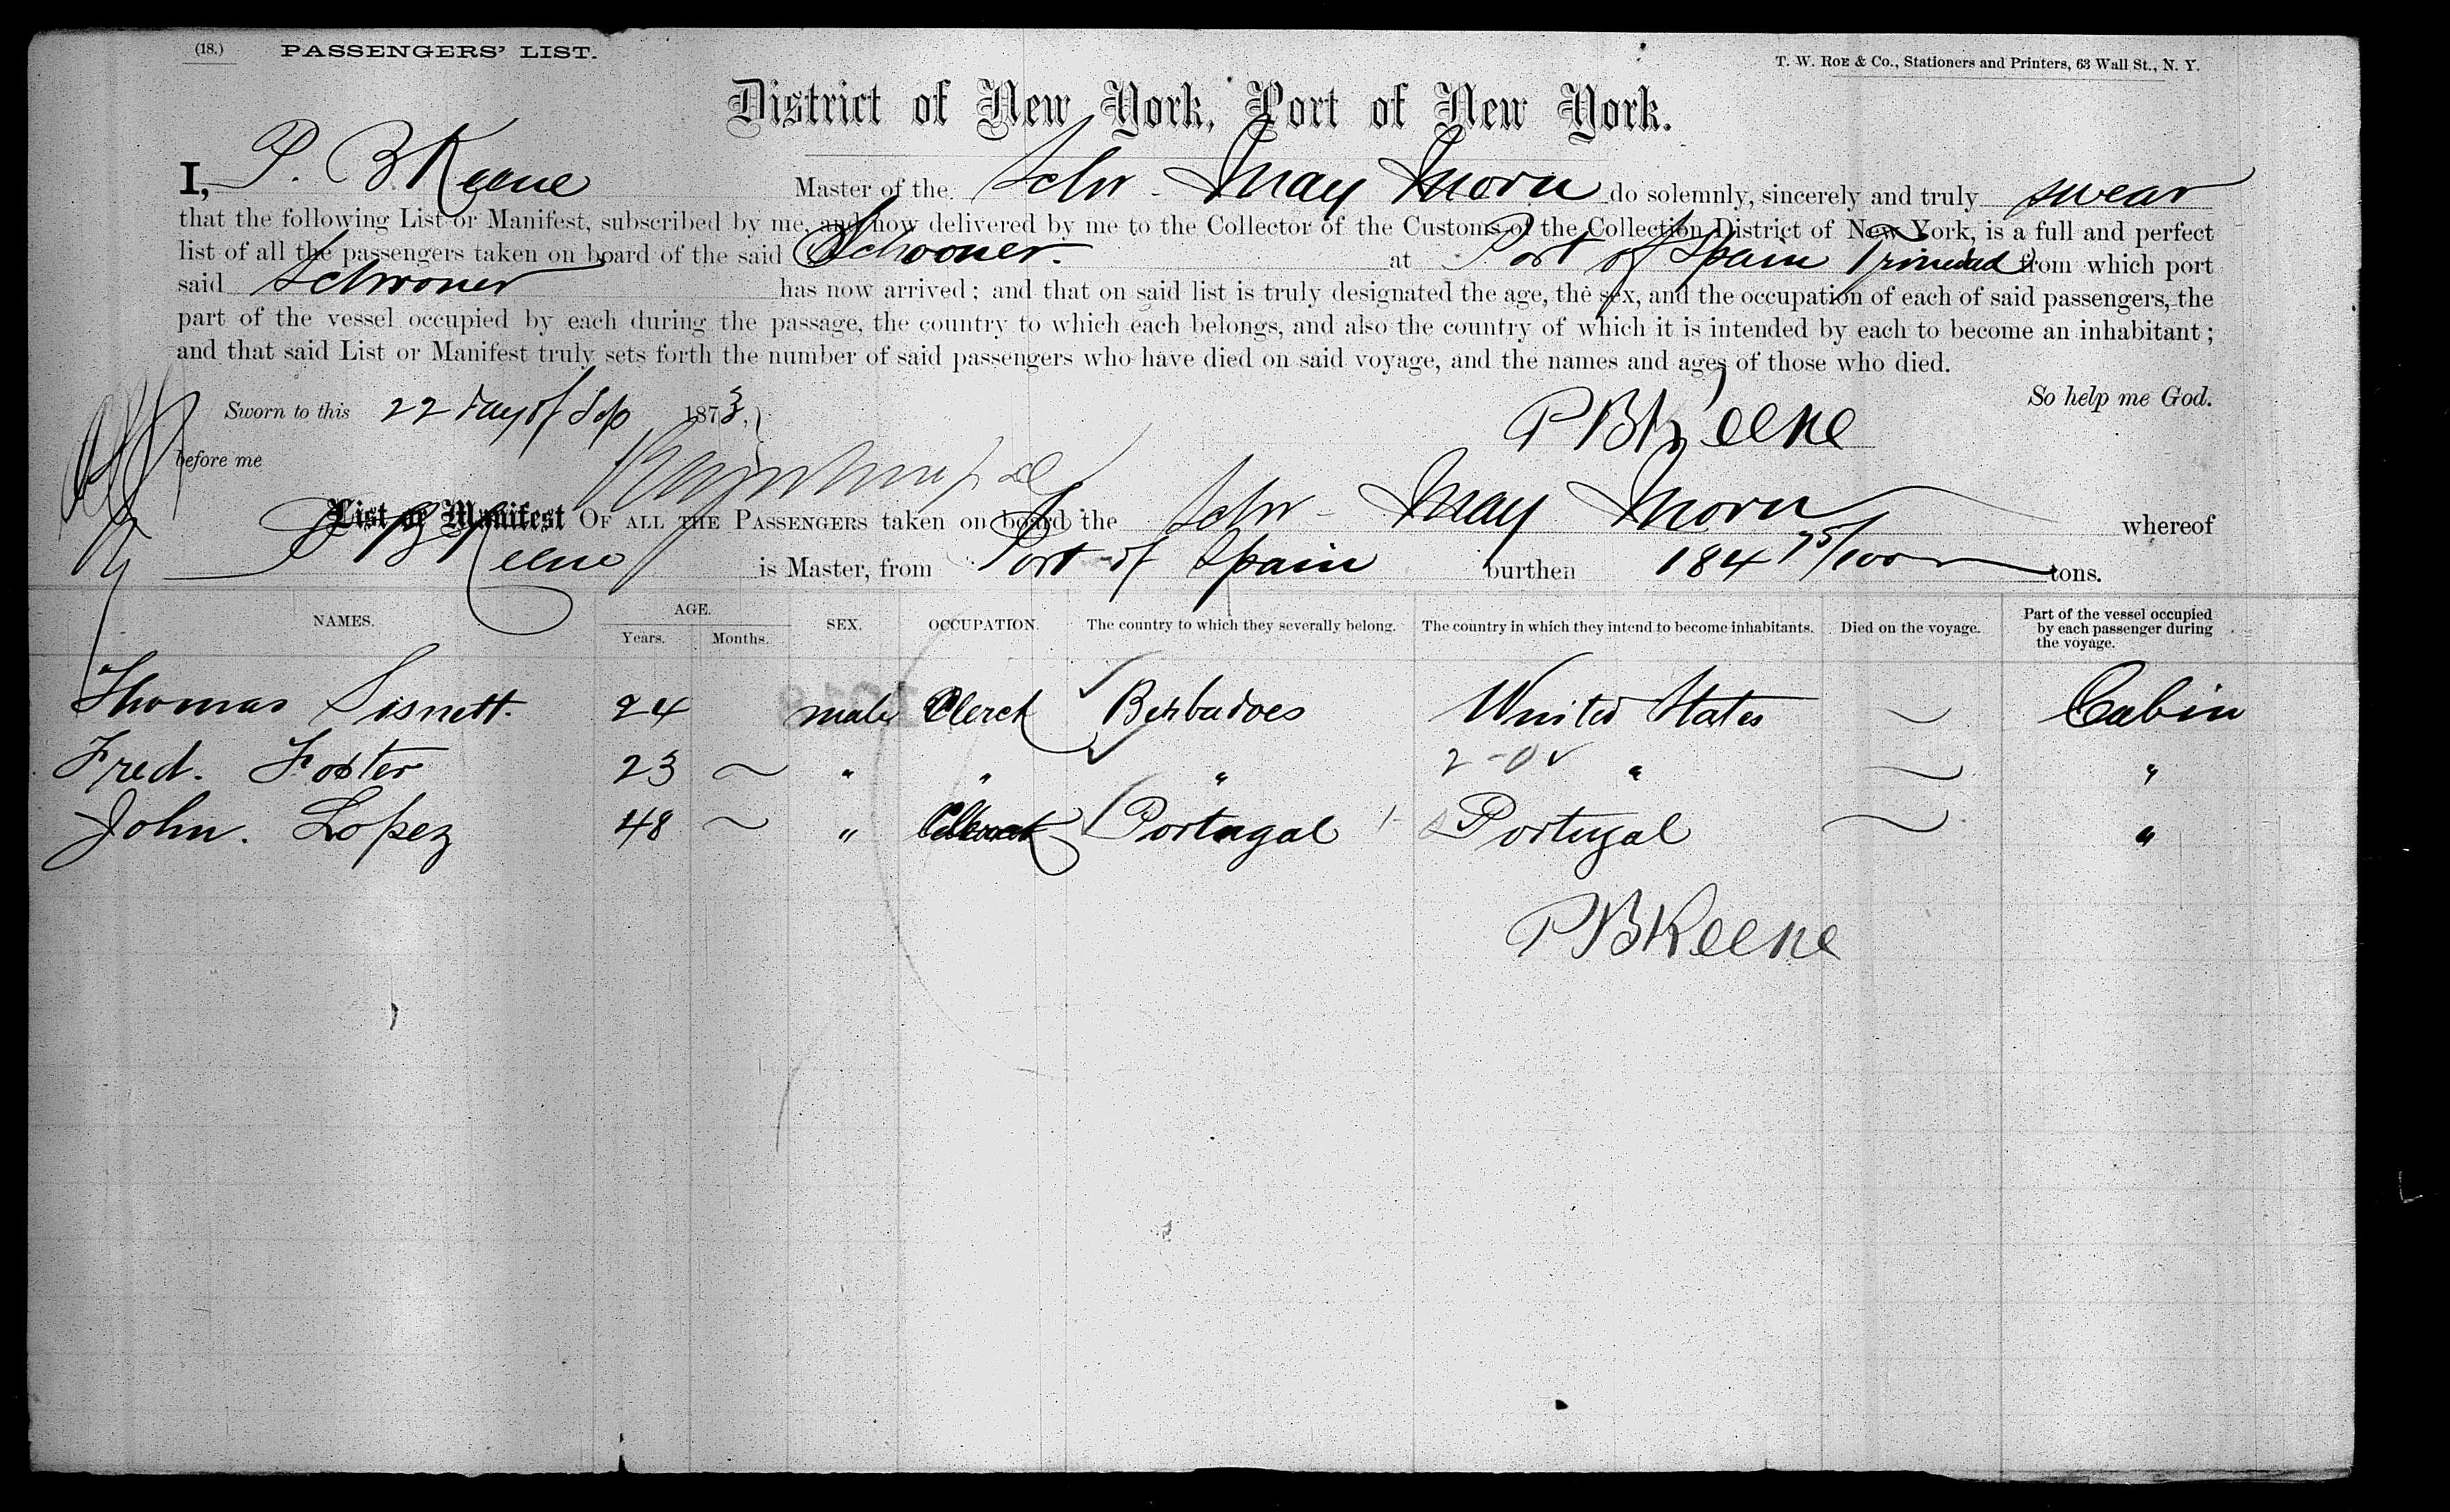 (18.) PASSENGERS' LIST.
T. W. Roe & Co., Stationers and Printers, 63 Wall St., N. Y.
District of New York, Port of New York.
I, P. B Keene Master of the Schr May Morn do solemnly, sincerely and truly swear
that the following List or Manifest, subscribed by me, and now delivered by me to the Collector of the Customs of the Collection District of New York, is a full and perfect
list of all the passengers taken on board of the said Schooner. at Port of Spain Trinidad from which port
said Schooner has now arrived; and that on said list is truly designated the age, the sex, and the occupation of each of said passengers, the
part of the vessel occupied by each during the passage, the country to which each belongs, and also the country of which it is intended by each to become an inhabitant;
and that said List or Manifest truly sets forth the number of said passengers who have died on said voyage, and the names and ages of those who died.
So help me God.
Sworn to this 22 day of Sep 1873,
P B Keene
before me
List or Manifest OF ALL THE PASSENGERS taken on board the Schr May Morn whereof
P B Keene is Master, from Port of Spain burthen 184 75/100 tons.
NAMES. AGE. Years. Months. SEX. OCCUPATION. The country to which they severally belong. The country in which they intend to become inhabitants. Died on the voyage. Part of the vessel occupied by each passenger during the voyage.
Thomas Sisnett. 24 male Clerck Berbadoes United States ~ Cabin
Fred. Foster 23 ~ " " " " ~ "
John. Lopez 48 ~ " Portugal Portugal ~ "
P B Keene